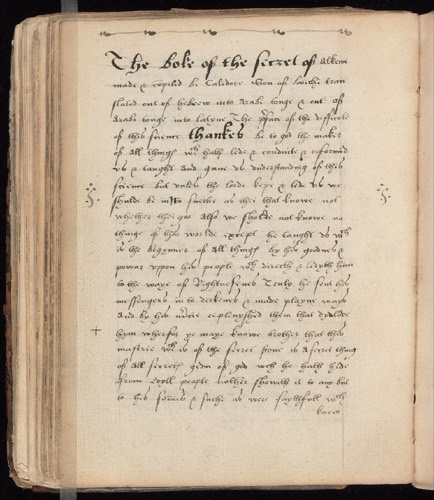 The boke of the secret of Alkemi
made & copiled be Calidore son of tran
slated out of hebrew into Arabi tonge & out of
Arabi tonge into latyne The pface of the difficulte
of this science thankes be to god the maker
of all things wch hath lede & conduite & reformed
us & taught and gave us understanding of this
science but unles the lorde kepe & lede us we
shulde be suche as they that knowe not
whether they goe Also we sholde not knowe no
thinge of this worlde except he taught us wch
is the begynner of all things by his goodnes &
power uppon his people wch directh & ledyth him
to the waye of Rightwisnes Truly he sent his
messengers in to derkenes & made playne ways
And by his replenyshed them that
hym wherfor ye maye knowe brother that this
mastrie wch is of the secret stone is A secret thing
of all secrets geven of god wch he hath hyde
from evyll people nother showith it to any but
to his sonnes & suche as were faythfull wch
knew